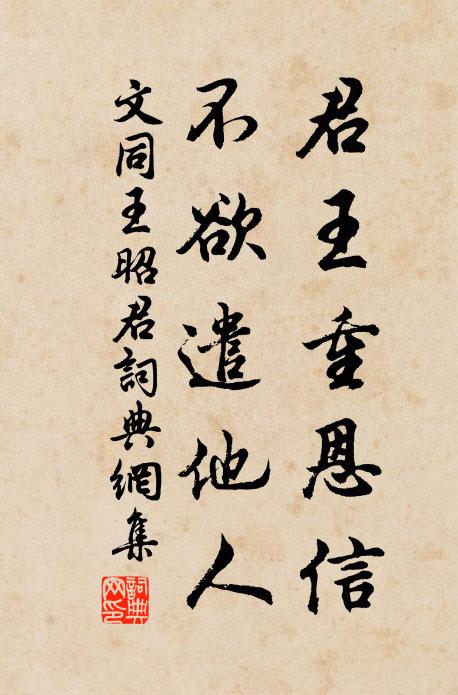 君王重恩信
不欲遣他人
文同王昭君詞典網集
詞典網印